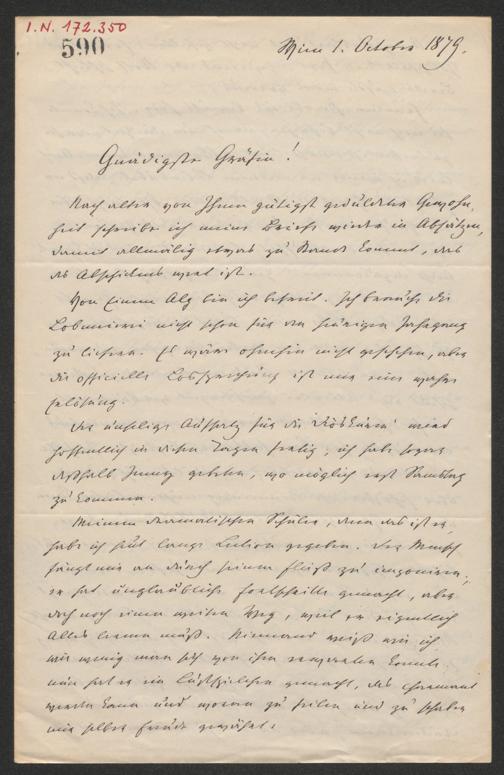 I.N. 172.350
590
Wien 1. October 1879.
Gnädigste Gräfin!
Nach alter von Ihnen gütigst geduldeter Gewohn-
heit schreibe ich meine Briefe wieder in Absätzen,
damit allmälig etwas zu Stande kommt, das
des Abschickens wert ist.
Von Einem Alp bin ich befreit. Ich brauche die
nicht schon für den heurigen Jahrgang
zu liefern. Es wäre ohnehin nicht geschehen, aber
die officielle Lossprechung ist mir eine wahre
Erlösung.
Der unselige Aufsatz für die Dioskuren wird
hoffentlich in diesen Tagen fertig; ich habe sogar
deßhalb gebeten, wo möglich erst Samstag
zu kommen.
Meinem dramatischen Schüler, denn das ist er,
habe ich heut lange Lection gegeben. Der Mensch
fängt mir an durch seinen Fleiß zu imponieren,
er hat unglaubliche Fortschritte gemacht, aber
doch noch einen weiten Weg, weil er eigentlich
Alles lernen muß. Niemand weiß wie ich
wie wenig man sich von ihm erwarten konnte
nun hat er ein Lustspielchen gemacht, das charmant
werden kann und woran zu feilen und zu
mir selber Freude gewährt.